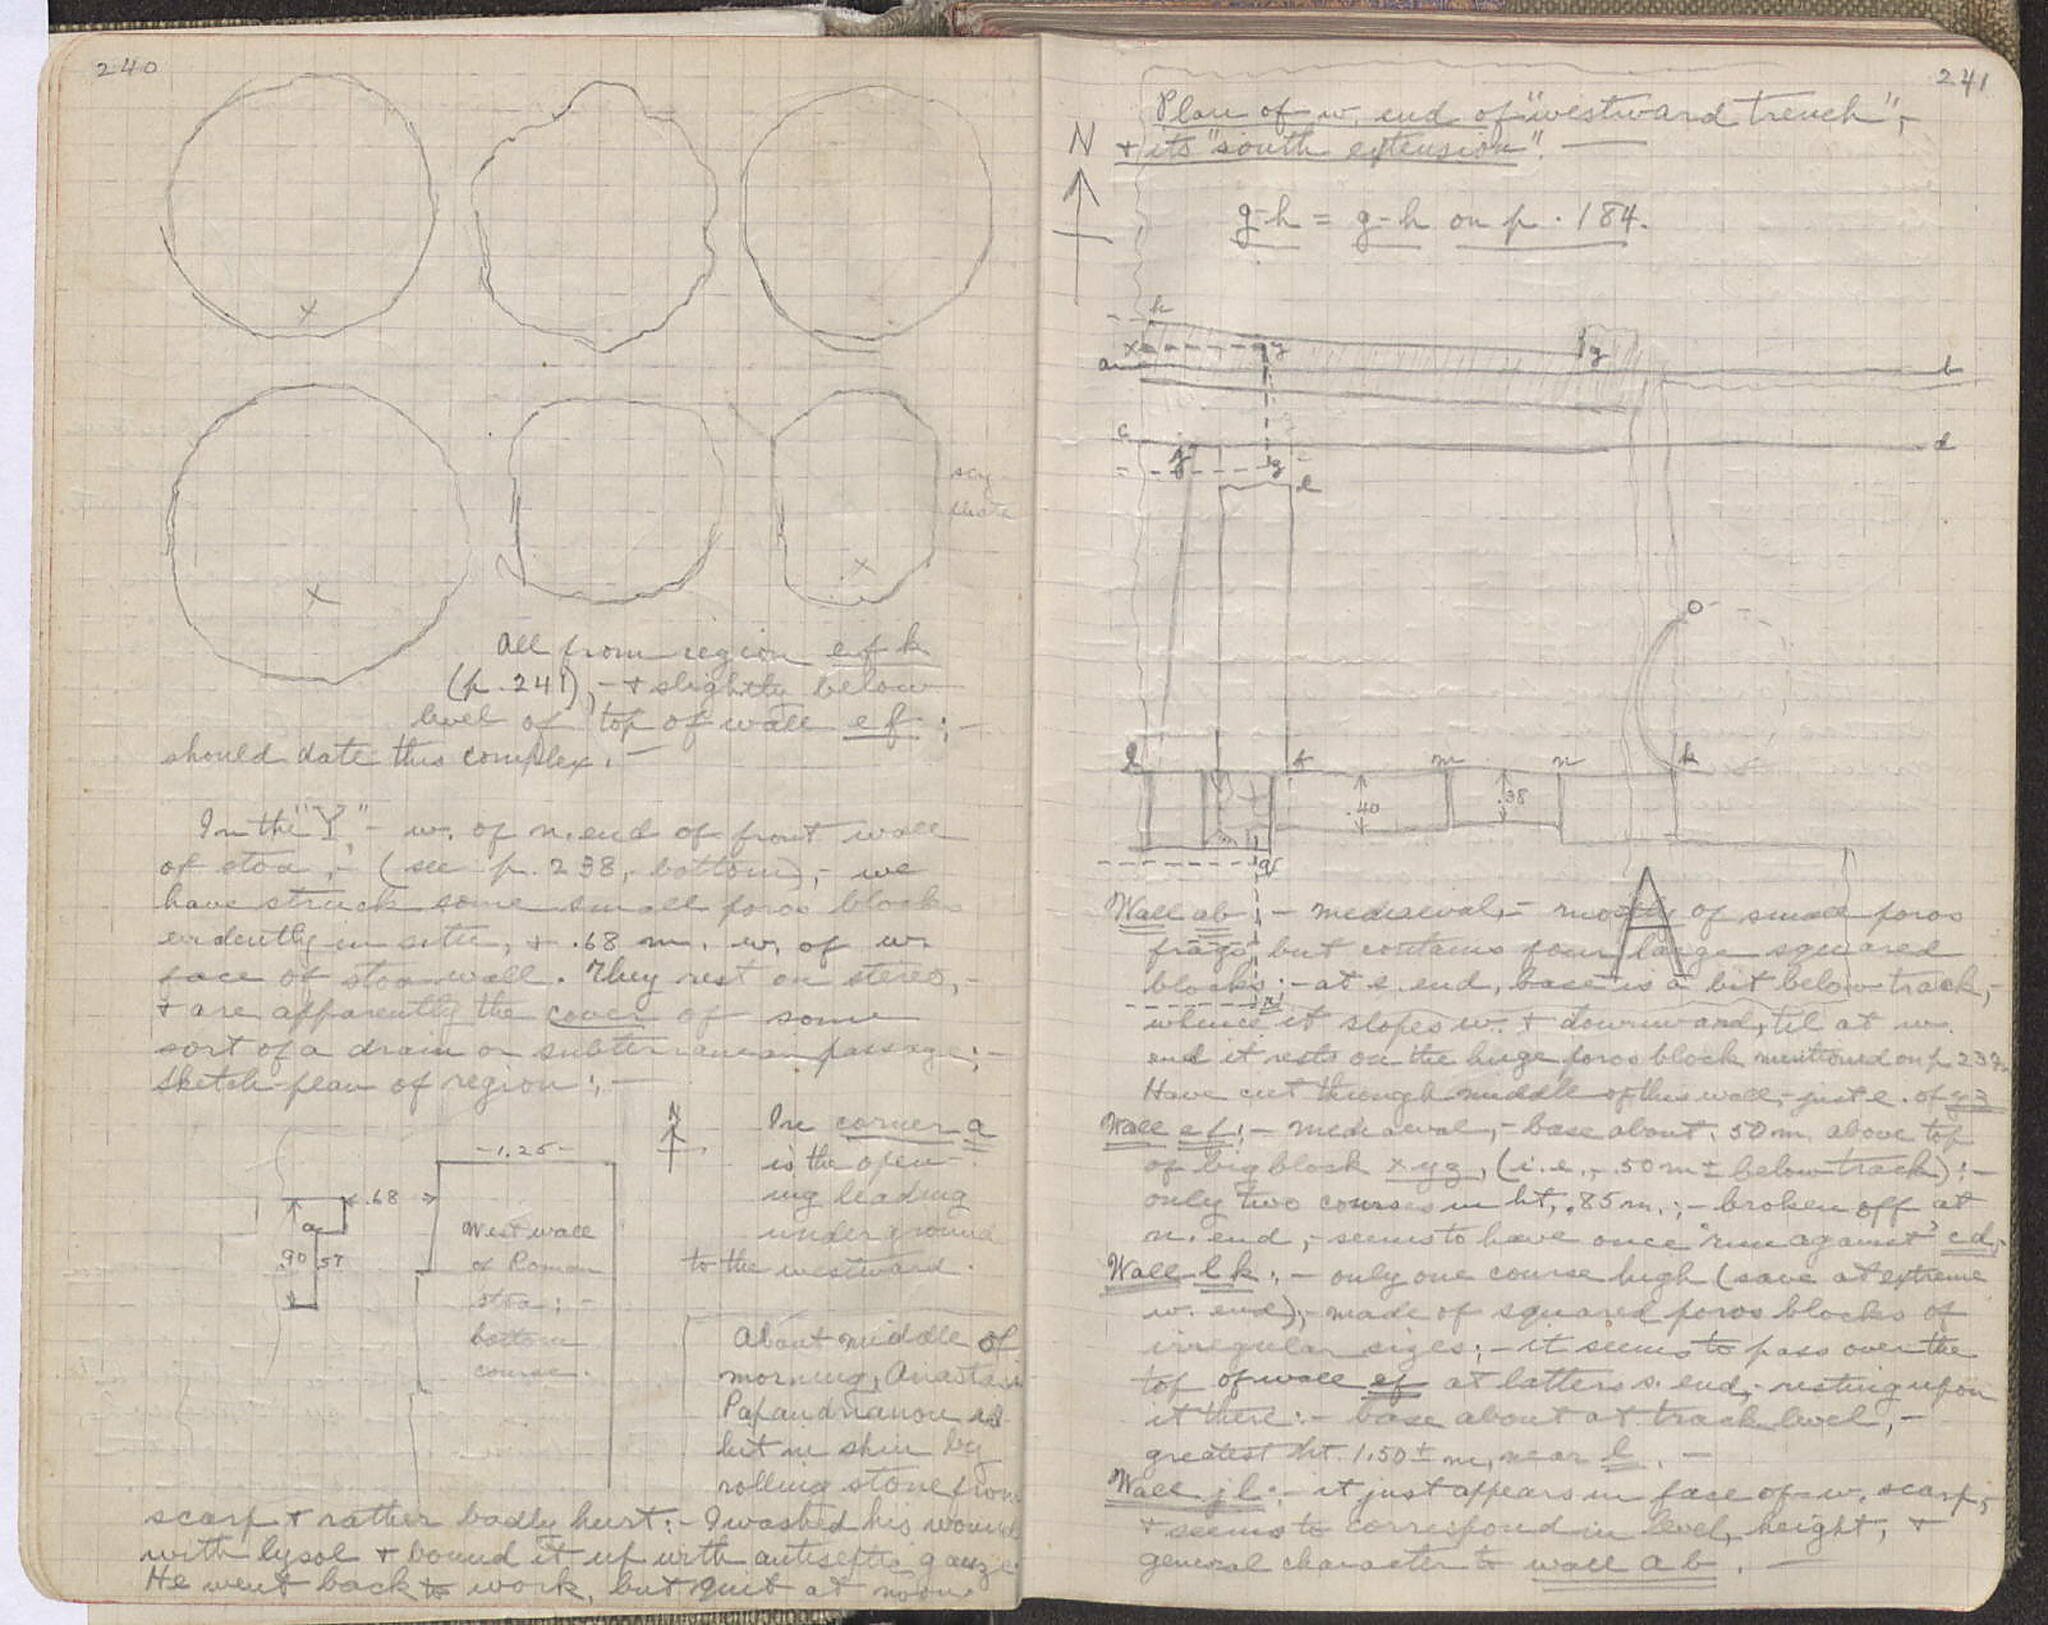 240
All from region efk
(p. 241), - + slightly below
level of top of wall ef; -
should date this complex. -
In the "Y", - w. of n. end of front wall
of stoa, - (see p. 238, bottom), - we
have struck some small poros blocks
evidently in situ, + .68 m. w. of w.
face of stoa wall. They rest on stereo, -
+ are apparently the cover of some
sort of a drain or subterranean passage; -
sketch-plan of region: -
N
-1.25-
.68
a
.90
57
West wall
of Roman
stoa: -
bottom
course.
In corner a
is the open-
ing leading
underground
to the westward.
About middle of
morning,
hit in shin by
rolling stone from
scarp + rather badly hurt: - I washed his wound
with lysol + bound it up with antiseptic gauze.
He went back to work, but quit at noon.
241
Plan of w. end of "westward trench", -
+ its "south extension". -
N
g-h = g-h on p. 184.
h
x y g
a b
c d
j z
e
o
l f m n k
.40 .38
A
Wall ab, - mediaeval, - mostly of small poros
frags but contains four large squared
blocks: - at e. end, base is a bit below track, -
whence it slopes w. + downward, til at w.
end it rests on the huge poros block mentioned on p
Have cut through middle of this wall, - just e. of yz
Wall ef: - mediaeval, - base about .50 m. above top
of big block xyz, (i.e., - .50 m ± below track): -
only two courses in ht, .85 m.; - broken off at
n. end, - seems to have once "run against" cd, -
Wall lk: - only one course high (save at extreme
w. end); - made of squared poros blocks of
irregular sizes; - it seems to pass over the
top of wall ef at latters s. end, - resting upon
it there: - base about at track level, -
greatest ht. 1.50 ± m, near l. -
Wall jl: - it just appears in face of w. scarp, -
+ seems to correspond in level, height, +
general character to wall ab. -